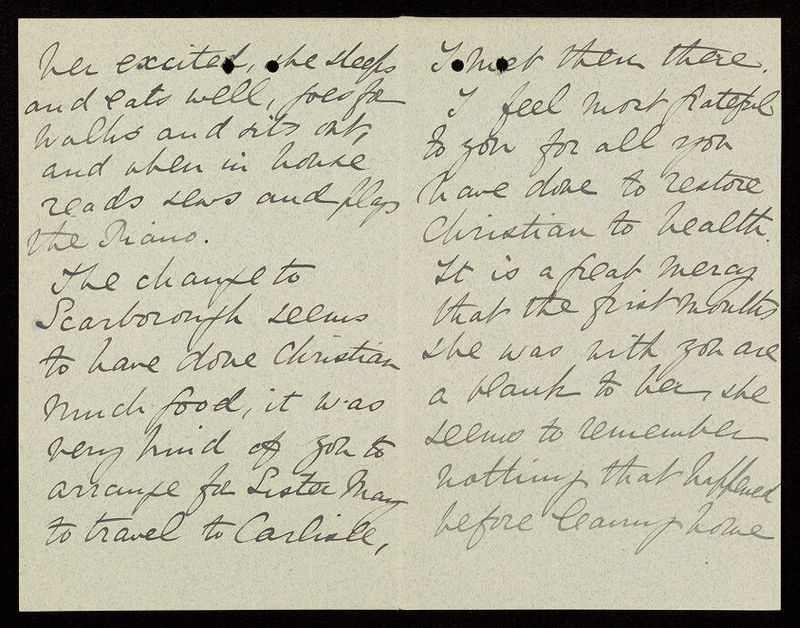 her excited, she sleeps
and eats well, goes for
walks and sits out,
and when in house
reads sews and plays
the Piano.
The change to
Scarborough seems
to have done Christian
much good, it was
very kind of you to
arrange for Sister May
to travel to Carlisle,
I met them there.
I feel most grateful
to you for all you
have done to restore
Christian to health.
It is a great mercy
that the first months
she was with you are
a blank to her, she
seems to remember
nothing that happened
before leaving home